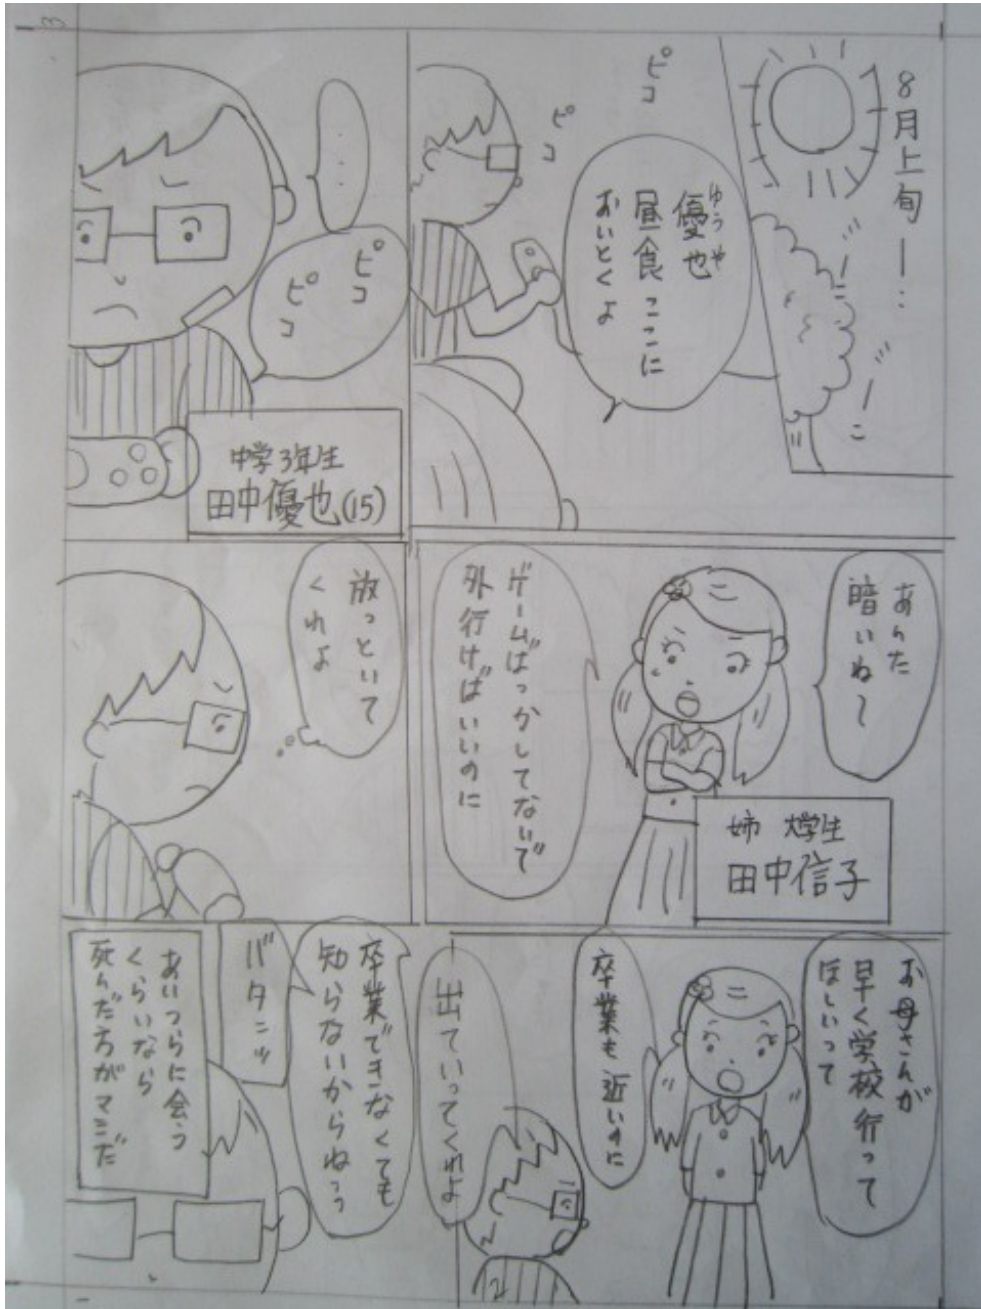 8月上旬ー…
ミーン
ミーン
ピコ
ピコ
優也
ゆうや
昼食ここに
おいとくよ
……
ピコ
ピコ
中学3年生
田中優也(15)
あんた
暗いね〜
姉 大学生
田中信子
ゲームばっかしてないで
外行けばいいのに
放っといて
くれよ
お母さんが
早く学校行って
ほしいって
卒業も近いのに
出ていってくれよ
卒業できなくても
知らないからねっっ
バタンッ
あいつらに会う
くらいなら
死んだ方がマシだ
3